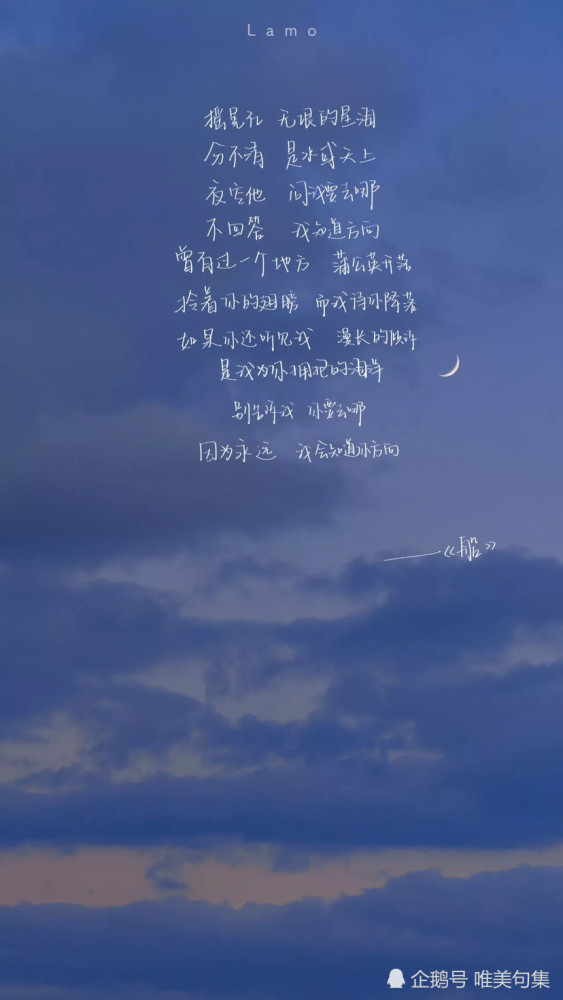 Lamo
摇晃 无限的星海
分不清 是水或天上
夜空他 问我要去哪
不回答 我知道方向
曾有过一个地方 蒲公英开落
拎着你的翅膀 而我 你降落
如果你还听见我 漫长的
是我为你拥抱的海洋
别告诉我 你要去哪
因为永远 我会知道你方向
——《船》
企鹅号 唯美句集